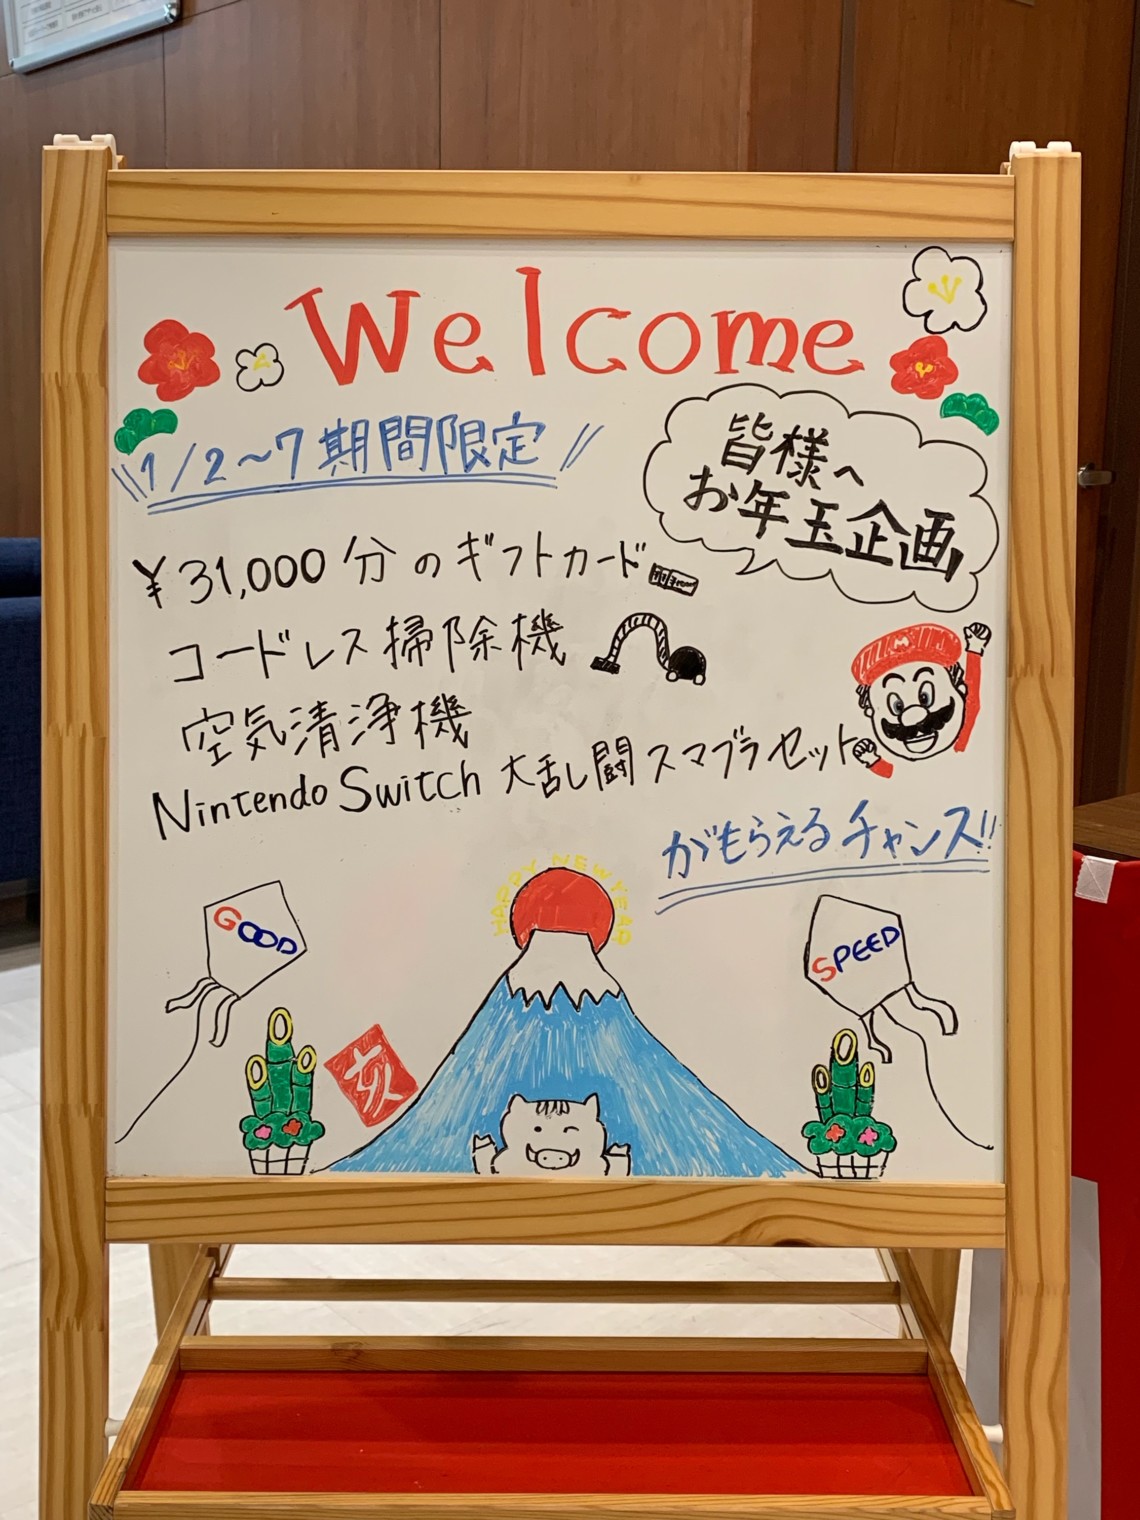 Welcome
1/2~7 期間限定
皆様へ
お年玉企画
¥31,000分のギフトカード
コードレス掃除機
空気清浄機
Nintendo Switch 大乱闘スマブラセット
がもらえるチャンス!!
HAPPY NEW YEAR
GOOD
SPEED
亥